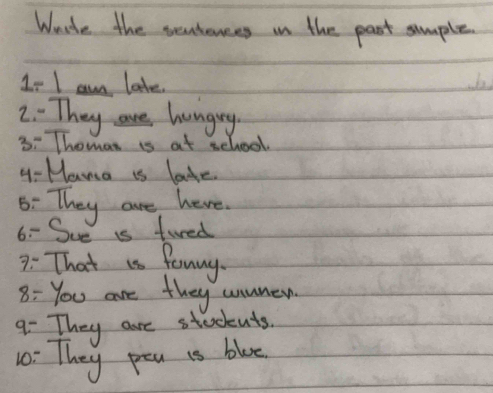 Write the sentences in the past simple.
1.- I am late.
2.- They are hungry.
3.- Thomas is at school.
4.- Maria is late.
5.- They are here.
6.- Sue is tired
7.- That is funny.
8.- You are they winner.
9.- They are students.
10.- They pen is blue.